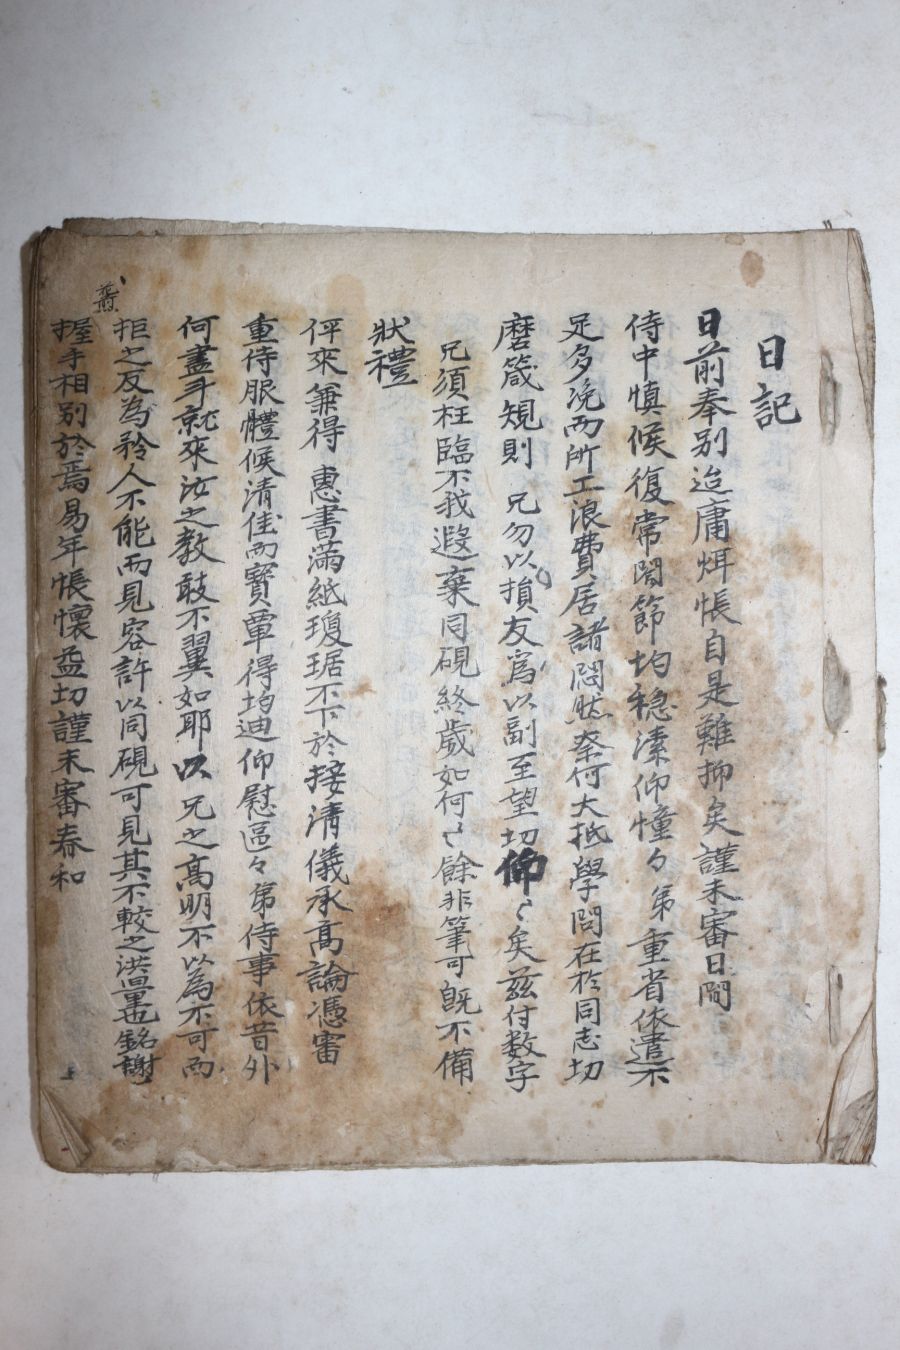 日記
日前奉別迨庸烓悵自是難抑矣謹未審日間
侍中愼候復常閤節均穩溸仰憧々弟重省依遣不
足多浼而所工浪費居諸悶悶然奈何大抵學問在於同志切
磨箴規則兄勿以損友爲以副至望切佈〻矣玆付数字
兄須枉臨不我遐棄同硯終歲如何〻餘非筆可旣不備
狀禮
伻來兼得惠書滿紙瓊琚不下於接淸儀承高論憑審
重侍服體候淸佳而寶覃得均迪仰慰區々弟侍事依昔外
何盡喩就來汝之敎敢不翼如耶以兄之高明不以為不可而
拒之反為矜人不能而見容許以同硯可見其不較之洪量也銘謝
叢
握手相別於焉易年悵懷益切謹未審春和
上